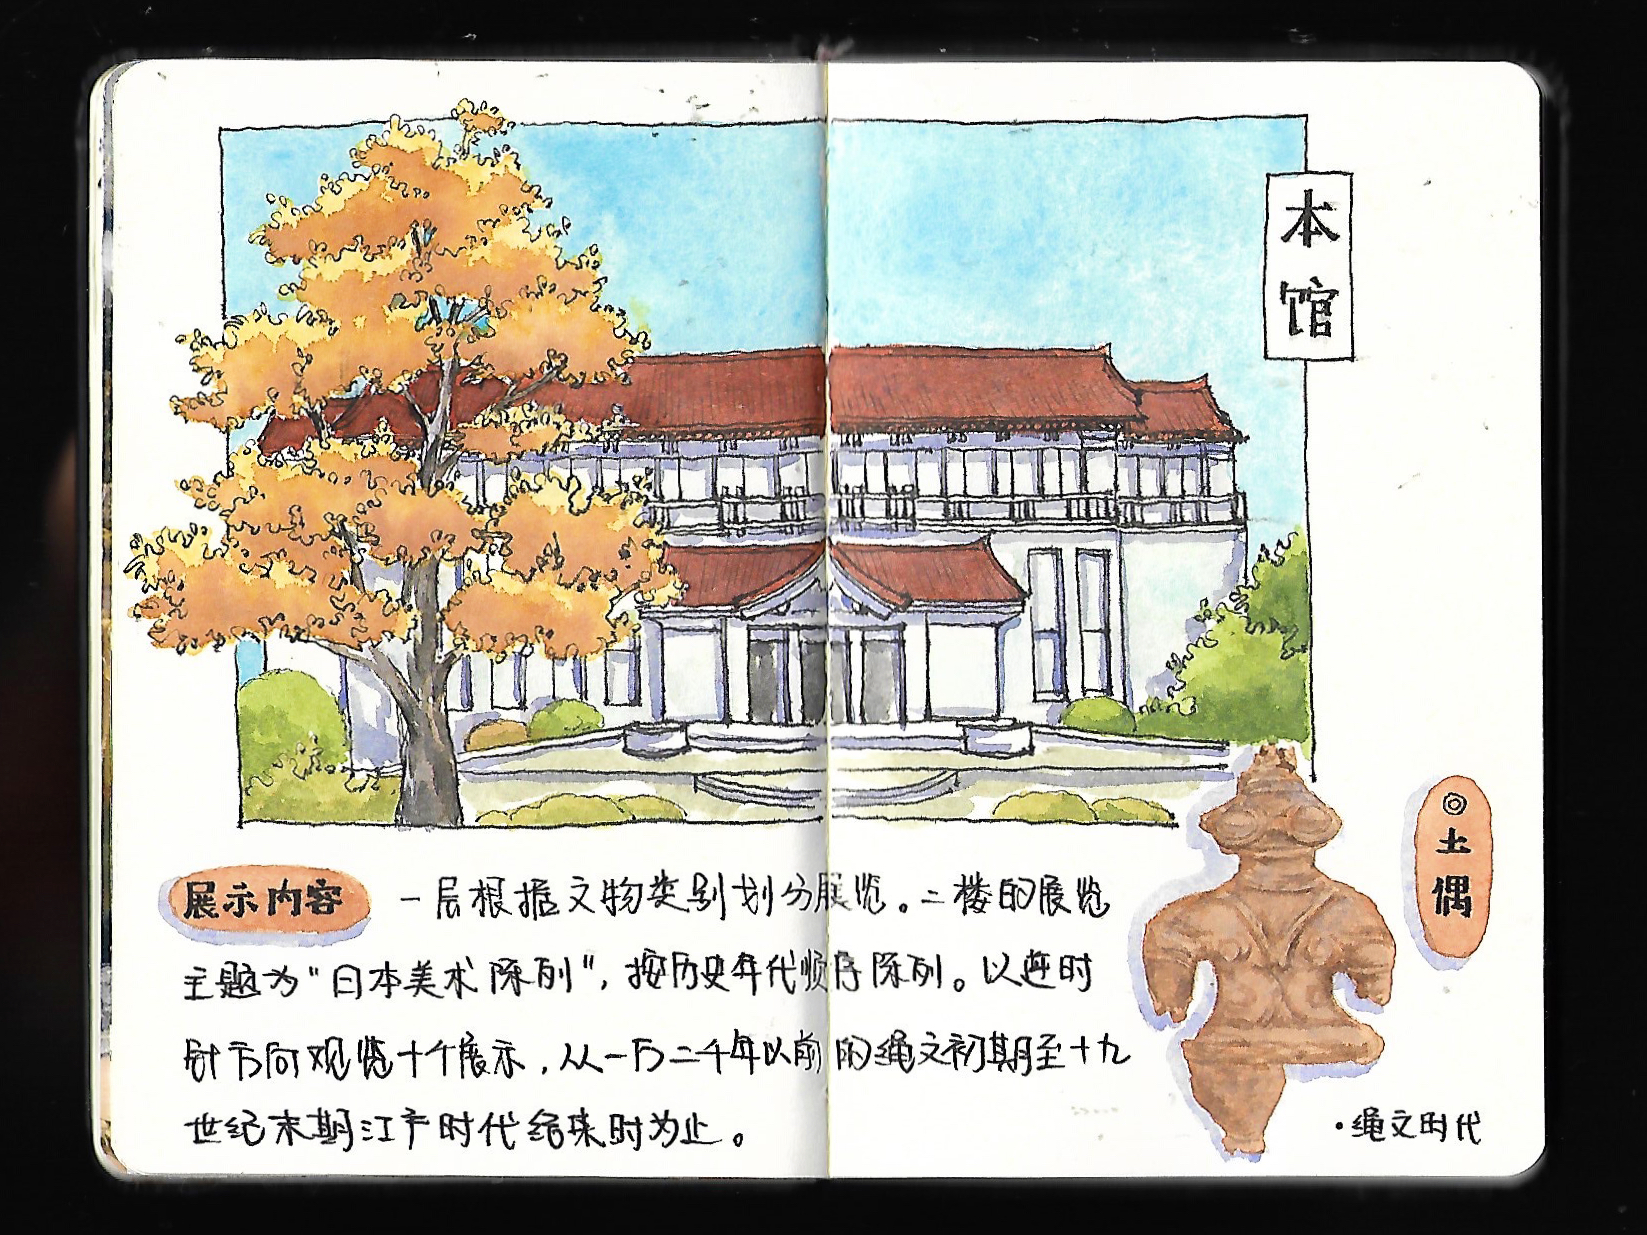 本馆
展示内容 一层根据文物类别划分展览。二楼的展览
主题为“日本美术陈列”，按历史年代顺序陈列。以逆时
针方向观览十个展示，从一万二千年以前的绳文初期至十九
世纪末期江户时代结束时为止。
◎土偶
·绳文时代